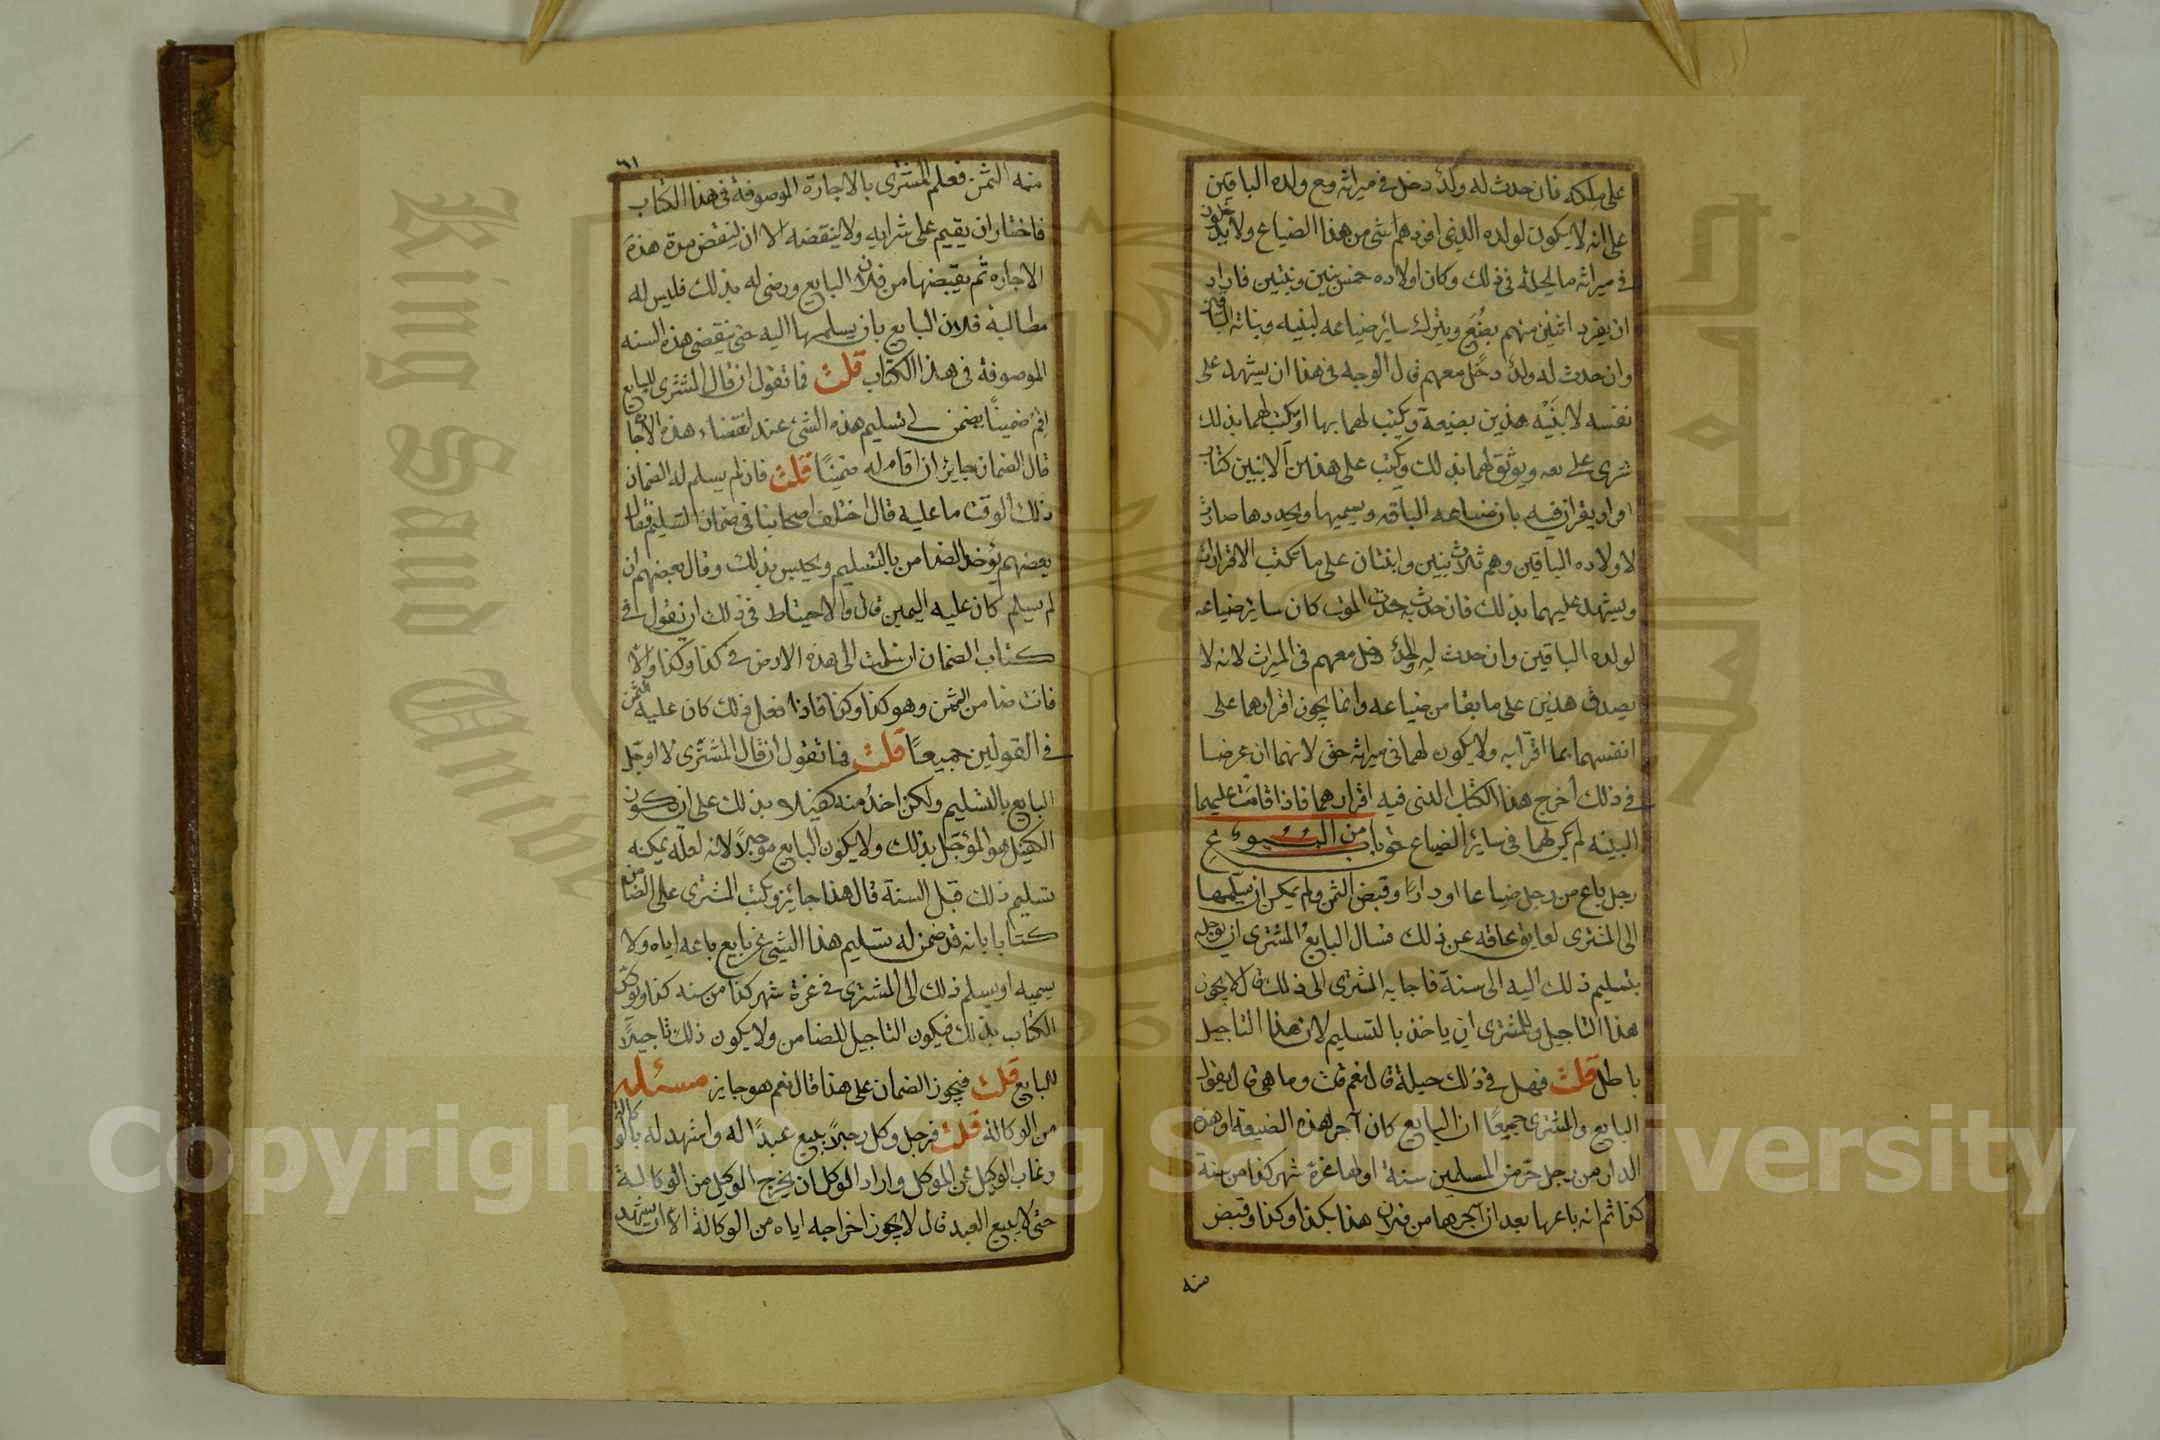 على ملكه فان حدث له ولد دخل فى ميراثه مع ولده الباقين
على انه لا يكون لولده الذين افردهم شى من هذا الضياع ولا يدخلون
فى ميراثه ما الحيلة فى ذلك وكان اولاده خمس بنين وبنتين فاراد
ان يفرد اثنين منهم بضيع ويترك سائر ضياعه لبنيه وبناته الباقين
وان حدث له ولد دخل معهم قال الوجه فى هذا ان يشهد على
نفسه لابنيه هذين بضيعة ويكتب لهما بها او يكتب لهما بذلك
شرى على بعه ويوثق لهما بذلك ويكتب على هذين الابنين كتاب
اقرار يقران فيه بان ضياعه الباقيه ويسميها ويحددها صارت
لاولاده الباقين وهم ثلاث بنين وابنتان على ما تكتب الاقرارات
ويشهد عليهما بذلك فان حدث به حدث الموت كان سائر ضياعه
لولده الباقين وان حدث له ولد دخل معهم فى الميراث لانه لا
يصدق هذين على ما بقا من ضياعه وانما يجوز اقرارهما على
انفسهما بما اقرا به ولا يكون لهما فى ميراثه حق لانهما ان عرضا
فى ذلك اخرج هذا الكتاب الذى فيه اقرارهما فاذا قامت عليهما
البينه لم يكن لهما فى سائر الضياع حق باب من البيوع
رجل باع من رجل ضياعا او دارا وقبض الثمن ولم يمكن ان يسلمها
الى المشترى لعايق عاقه عن ذلك فسال البايع المشترى ان يوجله
بتسليم ذلك اليه الى سنة فاجابه المشترى الى ذلك قال لا يجوز
هذا التاجيل وللمشترى ان ياخذ بالتسليم لان هذا التاجيل
باطل قلت فهل فى ذلك حيلة قال نعم قلت وما هى قال يقول
البايع والمشترى جميعا ان البايع كان آجر هذه الضيعة او هذه
الدار من رجل حر من المسلمين سنة اولها غرة شهر كذا من سنة
كذا ثم انه باعها بعد ان آجرها من فلان هذا بكذا وكذا وقبض
منه
٦١
منه الثمن فعلم المشترى بالاجارة الموصوفة فى هذا الكتاب
فاختار ان يقيم على شرايه ولا ينقضه الا ان ينقض مدة هذه
الاجاره ثم يقبضها من فلان البايع ورضى له بذلك فليس له
مطالبة فلان البايع بان يسلمها اليه حتى ينقضى هذه السنه
الموصوفة فى هذا الكتاب قلت فما تقول ان قال المشترى للبايع
اقم ضمينا يضمن لى تسليم هذه الشئ عند انقضاء هذه الاجا
قال الضمان جايز ان اقام له ضمينا قلت فان لم يسلم له الضمان
ذلك الوقت ما عليه قال اختلف اصحابنا فى ضمان التسليم فقال
بعضهم يؤخذ الضامن بالتسليم ويحبس بذلك وقال بعضهم ان
لم يسلم كان عليه اليمين قال والاحتياط فى ذلك ان يقول فى
كتاب الضمان ان سلمت الى هذه الارض فى كذا وكذا والا
فانت ضامن الثمن وهو كذا وكذا فاذا فعل ذلك كان عليه الثمن
فى القولين جميعا قلت فما تقول ان قال المشترى لا اوجل
البايع بالتسليم ولكن اخذ منه كفيلا بذلك على ان يكون
الكفيل هو المؤجل بذلك ولا يكون البايع موجلا لانه لعله يمكنه
تسليم ذلك قبل السنة قال هذا جائز ويكتب المشترى على الضامن
كتابا بانه قد ضمن له تسليم هذا الشيئ عن بايع باعه اياه ولا
يسميه او يسلم ذلك الى المشترى فى غرة شهر كذا من سنه كذا ويوكل
الكتاب بذلك فيكون التاجيل للضامن ولا يكون ذلك تاجيلا
للبايع قلت فيجوز الضمان على هذا قال نعم هو جايز مسئله
من الوكالة قلت فرجل وكل رجلا ببيع عبدا له واشهد له بالوكالة
وغاب الوكيل عن الموكل واراد الموكل ان يخرج الوكيل من الوكالة
حتى لا يبيع العبد قال لا يجوز اخراجه اياه من الوكالة الا ان يشهد
King Saud University
جامعة الملك سعود
1957
Copyright © King Saud University